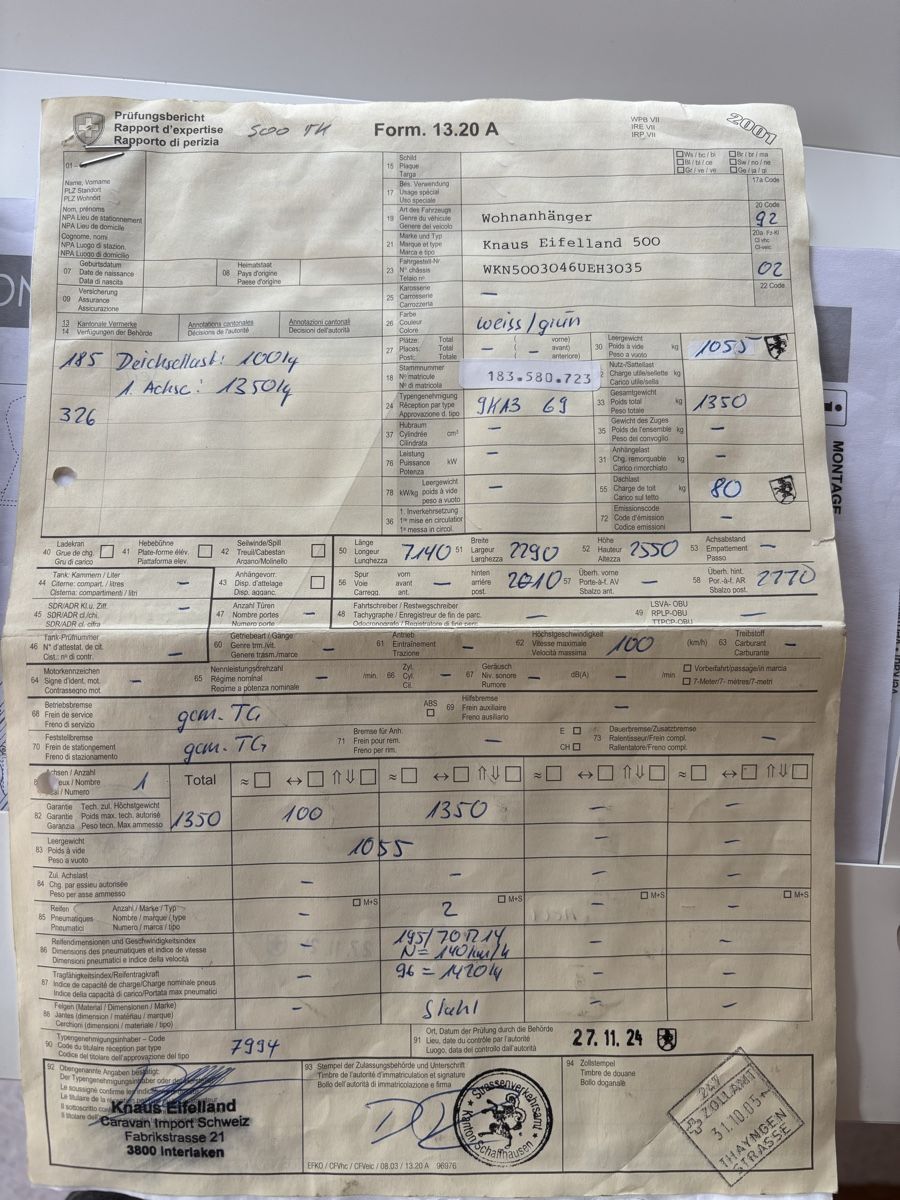 Prüfungsbericht
Rapport d'expertise
Rapporto di perizia
500 TK
Form. 13.20 A
WPB VII
IRE VII
IRP VII
2001
01
Name, Vorname
PLZ Standort
PLZ Wohnort
Nom, prénoms
NPA Lieu de stationnement
NPA Lieu de domicile
Cognome, nome
NPA Luogo di stazion.
NPA Luogo di domicilio
07 Geburtsdatum
Date de naissance
Data di nascita
08 Heimatstaat
Pays d'origine
Paese d'origine
09 Versicherung
Assurance
Assicurazione
15 Schild
Plaque
Targa
Ws / bc / bi
Bl / bl / ce
Gr / ve / ve
Br / br / ma
Sw / no / ne
Ge / ja / gi
17 Bes. Verwendung
Usage spécial
Uso speciale
17a Code
19 Art des Fahrzeugs
Genre du véhicule
Genere del veicolo
Wohnanhänger
20 Code
92
21 Marke und Typ
Marque et type
Marca e tipo
Knaus Eifelland 500
20a Fz-Kl
Cl vhc
Cl-veic
23 Fahrgestell-Nr
N° châssis
Telaio n°
WKN5003046UEH3035
02
25 Karosserie
Carrosserie
Carrozzeria
—
22 Code
26 Farbe
Couleur
Colore
weiss/grün
13 Kantonale Vermerke
14 Verfügungen der Behörde
Annotations cantonales
Décisions de l'autorité
Annotazioni cantonali
Decisioni dell'autorità
185 Deichsellast: 100kg
1. Achse: 1350kg
326
27 Plätze: Total
Places: Total
Posti: Totale
— ( — vorne)
( avant)
anteriore)
30 Leergewicht
Poids à vide
Peso a vuoto
kg
1055
18 Stammnummer
N° matricule
N° di matricola
183.580.723
Nutz-/Sattellast
Charge utile/sellette
Carico utile/sella
kg
24 Typengenehmigung
Réception par type
Approvazione d. tipo
9KA3 69
33 Gesamtgewicht
Poids total
Peso totale
kg
1350
37 Hubraum
Cylindrée cm³
Cilindrata
—
35 Gewicht des Zuges
Poids de l'ensemble kg
Peso del convoglio
—
76 Leistung
Puissance kW
Potenza
—
31 Anhängelast
Chg. remorquable kg
Carico rimorchiato
—
78 kW/kg Leergewicht
poids à vide
peso a vuoto
—
55 Dachlast
Charge de toit kg
Carico sul tetto
80
36 1. Inverkehrsetzung
1re mise en circulation
1a messa in circol.
72 Emissionscode
Code d'émission
Codice emissioni
—
40 Ladekran
Grue de chg.
Gru di carico
41 Hebebühne
Plate-forme élév.
Piattaforma elev.
42 Seilwinde/Spill
Treuil/Cabestan
Argano/Molinello
50 Länge
Longueur
Lunghezza
7140
51 Breite
Largeur
Larghezza
2290
52 Höhe
Hauteur
Altezza
2550
53 Achsabstand
Empattement
Passo
—
44 Tank: Kammern / Liter
Citerne: compart. / litres
Cisterna: compartimenti / litri
—
43 Anhängevorr.
Disp. d'attelage
Disp. agganc.
56 Spur
Voie
Carregg.
vorn
avant
ant.
—
hinten
arrière
post.
2010
57 Überh. vorne
Porte-à-f. AV
Sbalzo ant.
—
58 Überh. hint.
Por.-à-f. AR
Sbalzo post.
2770
45 SDR/ADR Kl.u. Ziff.
SDR/ADR cl./chi.
SDR/ADR cl. cifra
—
47 Anzahl Türen
Nombre portes
Numero porte
—
48 Fahrtschreiber / Restwegschreiber
Tachygraphe / Enregistreur de fin de parc.
Odocronografo / Registratore di fine perc.
—
49 LSVA- OBU
RPLP-OBU
TTPCP-OBU
—
46 Tank-Prüfnummer
N° d'attestat. de cit.
Cist.: n° di contr.
—
60 Getriebeart / Gänge
Genre trm./vit.
Genere trasm./marce
—
61 Antrieb
Entraînement
Trazione
—
62 Höchstgeschwindigkeit
Vitesse maximale
Velocità massima
100 (km/h)
63 Treibstoff
Carburant
Carburante
—
64 Motorkennzeichen
Signe d'ident. mot.
Contrassegno mot.
—
65 Nennleistungsdrehzahl
Régime nominal
Regime a potenza nominale
— /min
66 Zyl.
Cyl.
Cil.
—
67 Geräusch
Niv. sonore
Rumore
— dB(A) — /min
Vorbeifahrt/passage/in marcia
7-Meter/7- mètres/7-metri
68 Betriebsbremse
Frein de service
Freno di servizio
gem. TG
ABS
69 Hilfsbremse
Frein auxiliaire
Freno ausiliario
—
70 Feststellbremse
Frein de stationnement
Freno di stazionamento
gem. TG
71 Bremse für Anh.
Frein pour rem.
Freno per rim.
—
E
CH
73 Dauerbremse/Zusatzbremse
Ralentisseur/Frein compl.
Rallentatore/Freno compl.
—
Achsen / Anzahl
eux / Nombre
/ Numero
1
Total
82 Garantie Tech. zul. Höchstgewicht
Garantie Poids max. tech. autorisé
Garanzia Peso tecn. Max ammesso
1350 100 1350 — —
83 Leergewicht
Poids à vide
Peso a vuoto
1055 — —
84 Zul. Achslast
Chg. par essieu autorisée
Peso per asse ammesso
— — — —
85 Reifen Anzahl / Marke / Typ
Pneumatiques Nombre / marque / type
Pneumatici Numero / marca / tipo
M+S M+S M+S M+S
— 2 — —
86 Reifendimensionen und Geschwindigkeitsindex
Dimensions des pneumatiques et indice de vitesse
Dimensioni pneumatici e indice della velocità
— 195/70R14 — —
N = 140km/h
87 Tragfähigkeitsindex/Reifentragkraft
Indice de capacité de charge/Charge nominale pneus
Indice della capacità di carico/Portata max pneumatici
— 96 = 1420kg — —
88 Felgen (Material / Dimensionen / Marke)
Jantes (dimension / matériau / marque)
Cerchioni (dimensione / materiale / tipo)
— Stahl — —
90 Typengenehmigungsinhaber – Code
Code du titulaire réception par type
Codice del titolare dell'approvazione del tipo
7994
91 Ort, Datum der Prüfung durch die Behörde
Lieu, date du contrôle par l'autorité
Luogo, data del controllo dall'autorità
27. 11. 24
92 Obengenannte Angaben bestätigt:
Der Typengenehmigungsinhaber oder
Le soussigné confirme les
Le titulaire de la
Il sottoscritto
Il titolare
Knaus Eifelland
Caravan Import Schweiz
Fabrikstrasse 21
3800 Interlaken
93 Stempel der Zulassungsbehörde und Unterschrift
Timbre de l'autorité d'immatriculation et signature
Bollo dell'autorità di immatricolazione e firma
Strassenverkehrsamt
Kanton Schaffhausen
EFKO / CFVhc / CFVeic / 08.03 / 13.20 A 96976
94 Zollstempel
Timbre de douane
Bollo doganale
ZOLLAMT
31.10.03
THAYNGEN
STRASSE
MONTAGE